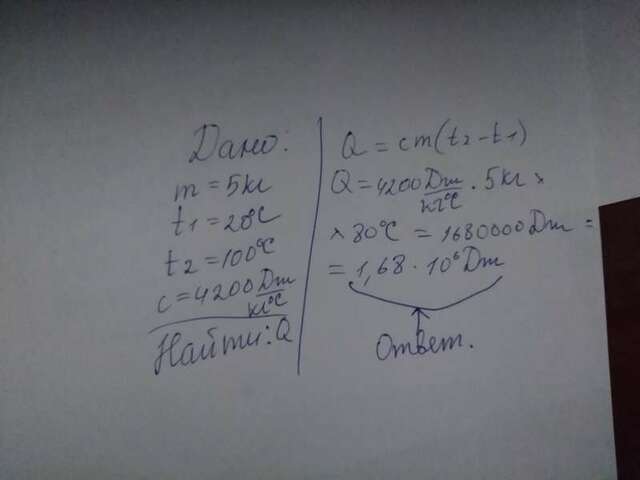 Дано:
m = 5кг
t1 = 20°C
t2 = 100°C
c = 4200 Дж/кг°C
Найти: Q
Q = cm(t2 - t1)
Q = 4200 Дж/кг°C · 5кг ×
× 80°C = 1680000 Дж =
= 1,68 · 10⁶ Дж
Ответ.